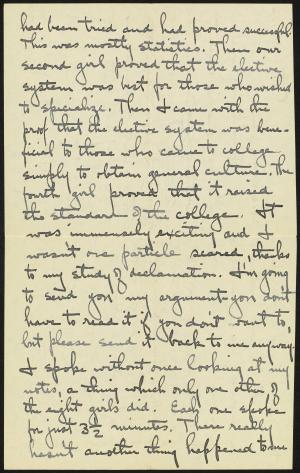 had been tried and had proved successful.
This was mostly statistics. Then our
second girl proved that the elective
system was best for those who wished
to specialize. Then I came with the
proof that the elective system was bene-
ficial to those who came to college
simply to obtain general culture. The
fourth girl proved that it raised
the standard of the college. It
was immensely exciting and I
wasn't one particle scared, thanks
to my study of declamation. I'm going
to send you my argument you don't
have to read it if you don't want to,
but please send it back to me anyway.
I spoke without once looking at my
notes, a thing which only one other of
the eight girls did. Each one spoke
for just 3½ minutes. There really
hasn't another thing happened to me